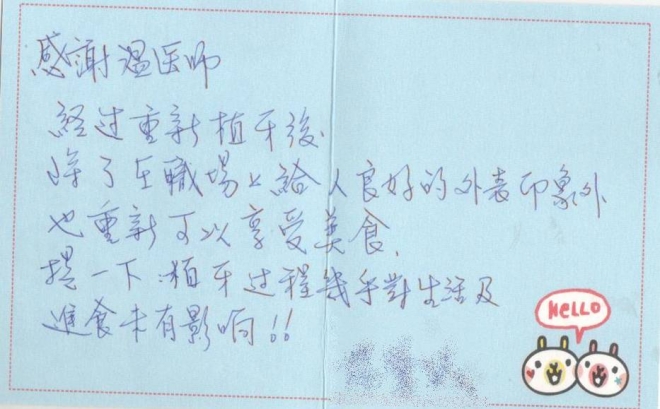 感謝溫医师
経过重新植牙後,
除了在職場上給人良好的外表印象外
也重新可以享受美食,
提一下,植牙过程幾乎對生活及
進食未有影响!!
HELLO